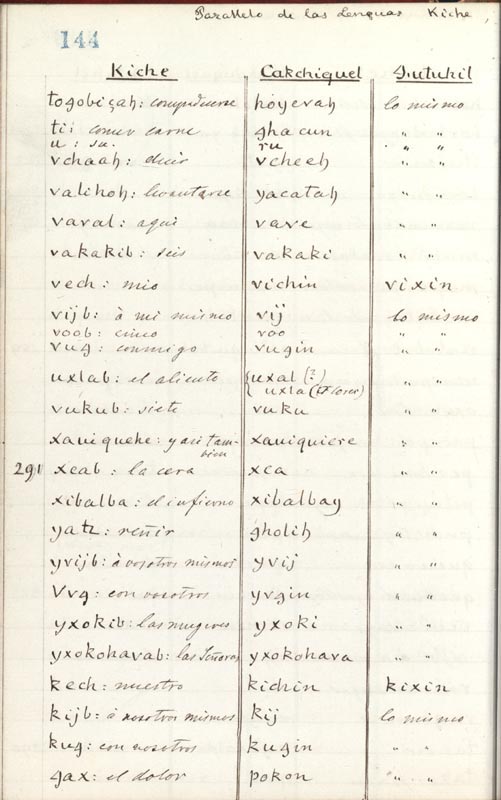 Parallelo de las Lenguas Kiche
144
Kiche Cakchiquel Tzutuhil
togobiçah: compadecerse hoyevah lo mismo
tií: comer carne gha cun " "
u: su. ru " "
vchaah: decir vcheeh " "
valihoh: levantarse yacatah " "
varal: aqui vave " "
vakakib: seis vakaki " "
vech: mio vichin vixin
vijb: à mi mismo vij lo mismo
voob: cinco voo " "
vug: conmigo vugin " "
uxlab: el aliento {uxal (?) " "
uxla (Flores)
vukub: siete vuku " "
xaviquehe: y asi tam- xaviquiere " "
bien
291 xcab: la cera xca " "
xibalba: el infierno xibalbay " "
yatz: reñir gholih " "
yvijb: à vosotros mismos yvij " "
Vvg: con vosotros yvgin " "
yxokib: las mugeres yxoki " "
yxokohavab: las Señoras yxokohava " "
kech: nuestro kichin kixin
kijb: à nosotros mismos kij lo mismo
kug: con nosotros kugin " "
gax: el dolor pokon " "